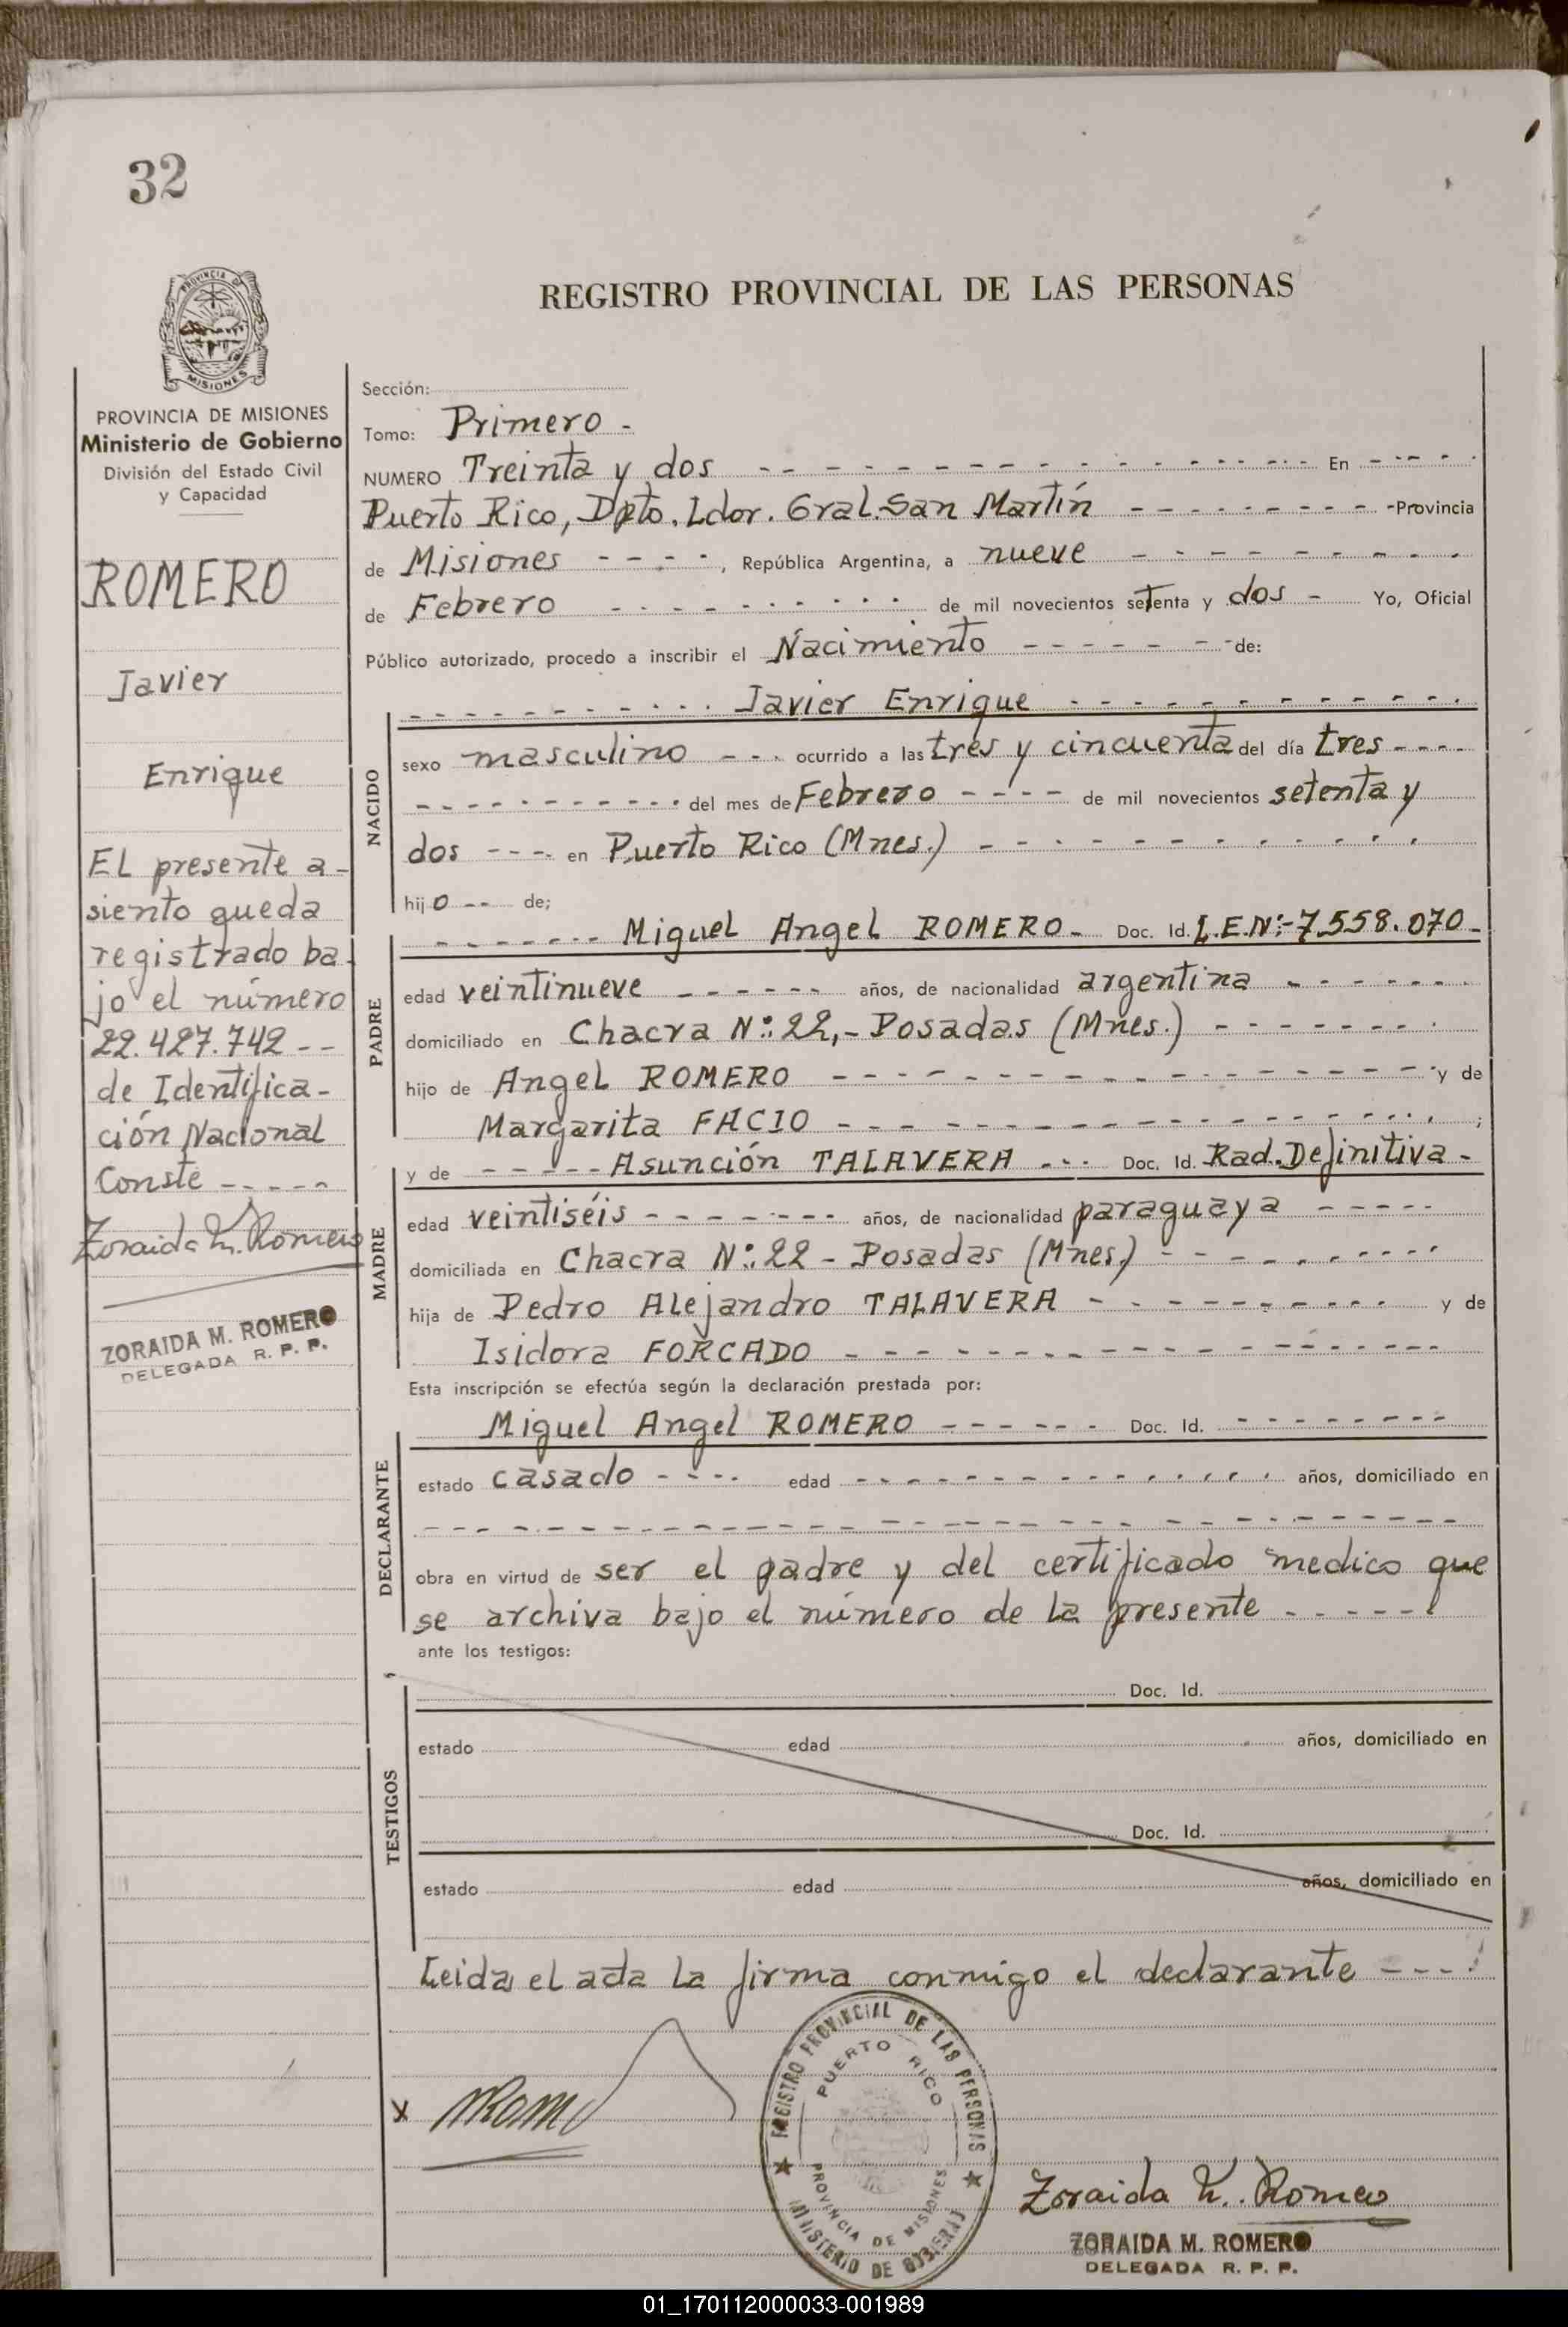 32
PROVINCIA DE
MISIONES
PROVINCIA DE MISIONES
Ministerio de Gobierno
División del Estado Civil
y Capacidad
ROMERO
Javier
Enrique
EL presente a-
siento queda
registrado ba-
jo el número
22.427.742 --
de Identifica-
ción Nacional
Conste -----
Zoraida M. Romero
ZORAIDA M. ROMERO
DELEGADA R. P. P.
REGISTRO PROVINCIAL DE LAS PERSONAS
Sección:
Tomo: Primero -
NUMERO Treinta y dos - - - En - - -
Puerto Rico, Dpto. Ldor. Gral. San Martín - - - Provincia
de Misiones - - - , República Argentina, a nueve - - -
de Febrero - - - de mil novecientos setenta y dos - Yo, Oficial
Público autorizado, procedo a inscribir el Nacimiento - - - de:
NACIDO
- - - Javier Enrique - - -
sexo masculino - - - ocurrido a las tres y cincuenta del día tres - - -
- - - del mes de Febrero - - - de mil novecientos setenta y
dos - - - en Puerto Rico (Mnes.) - - -
hijo -- de;
PADRE
- - - Miguel Angel ROMERO - Doc. Id. L.E.Nº:-7.558.070-
edad veintinueve - - - años, de nacionalidad argentina - - -
domiciliado en Chacra Nº:22,- Posadas (Mnes.) - - -
hijo de Angel ROMERO - - - y de
Margarita FACIO - - - ;
MADRE
y de - - - Asunción TALAVERA - - - Doc. Id. Rad. Definitiva -
edad veintiséis - - - años, de nacionalidad paraguaya - - -
domiciliada en Chacra Nº:22 - Posadas (Mnes.) - - -
hija de Pedro Alejandro TALAVERA - - - y de
Isidora FORCADO - - -
Esta inscripción se efectúa según la declaración prestada por:
DECLARANTE
Miguel Angel ROMERO - - - Doc. Id. - - -
estado casado - - - edad - - - años, domiciliado en
- - -
obra en virtud de ser el padre y del certificado medico que
se archiva bajo el número de la presente - - -
ante los testigos:
TESTIGOS
Doc. Id.
estado edad años, domiciliado en
Doc. Id.
estado edad años, domiciliado en
Leida el acta la firma conmigo el declarante - - -
x
REGISTRO PROVINCIAL DE LAS PERSONAS
PUERTO RICO
PROVINCIA DE MISIONES
MINISTERIO DE GOBIERNO
Zoraida M. Romero
ZORAIDA M. ROMERO
DELEGADA R. P. P.
01_170112000033-001989